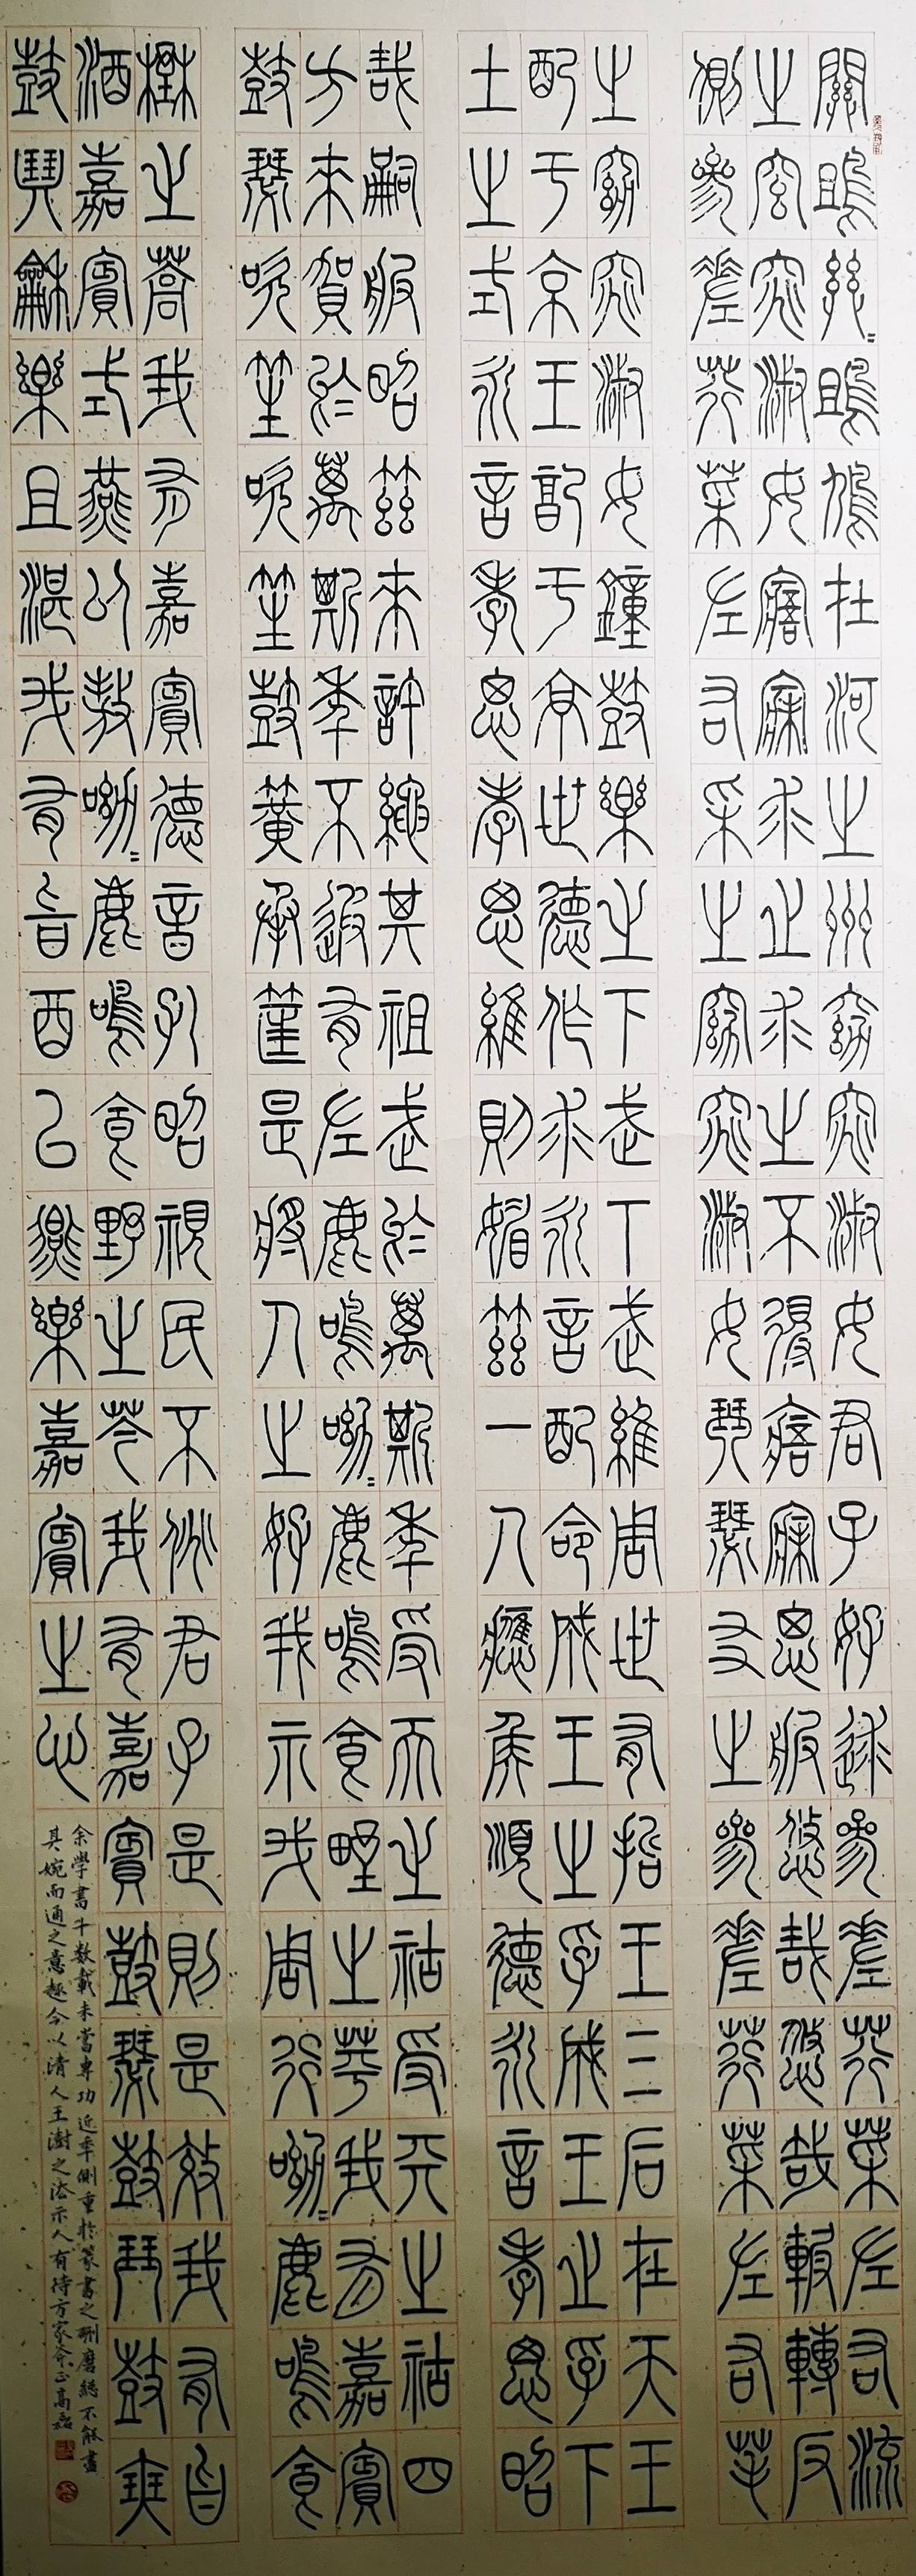 關雎關〻雎鳩在河之州窈窕淑女君子好逑參差荇菜左右流
之窈窕淑女寤寐求之求之不得寤寐思服悠哉悠哉輾轉反
側參差荇菜左右采之窈窕淑女琴瑟友之參差荇菜左右芼
之窈窕淑女鐘鼓樂之下武下武維周世有哲王三后在天王
配于京王配于京世德作求永言配命成王之孚成王之孚下
土之式永言孝思孝思維則媚茲一人應侯順德永言孝思昭
哉嗣服昭茲來許繩其祖武於萬斯年受天之祜受天之祜四
方來賀於萬斯年不遐有佐鹿鳴呦〻鹿鳴食野之苹我有嘉賓
鼓瑟吹笙吹笙鼓簧承筐是將人之好我示我周行呦〻鹿鳴食
野之蒿我有嘉賓德音孔昭視民不恌君子是則是效我有旨
酒嘉賓式燕以敖呦〻鹿鳴食野之芩我有嘉賓鼓瑟鼓琴鼓瑟
鼓琴龢樂且湛我有旨酒以燕樂嘉賓之心
余學書廿數載未嘗專功近年側重於篆書之研磨總不能盡
其婉而通之意趣今以清人王澍之法示人有待方家斧正高磊